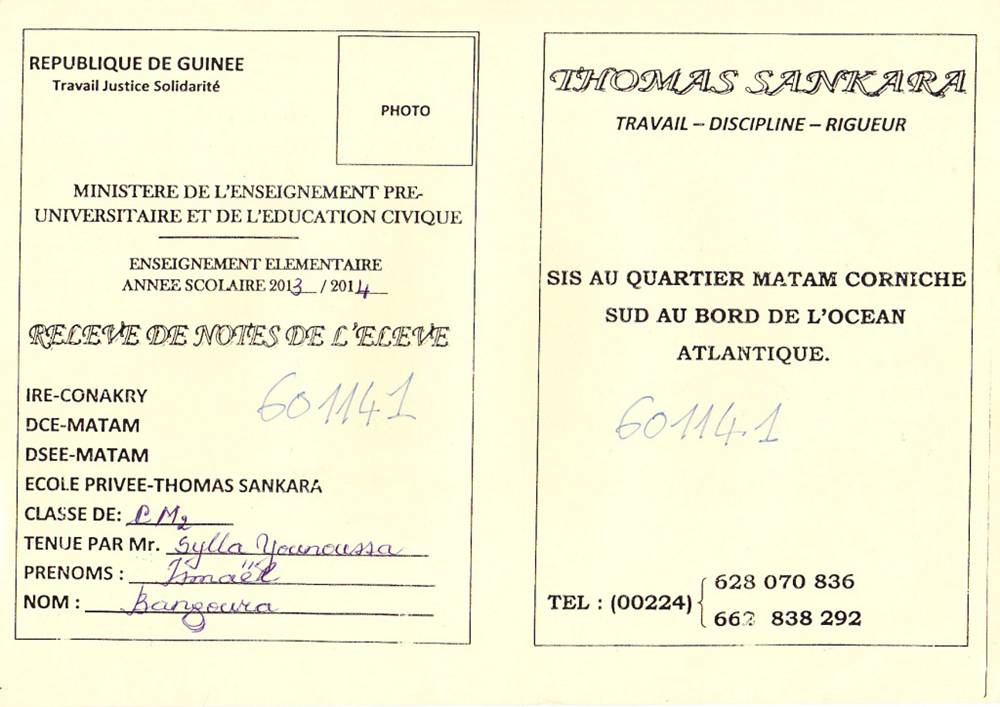 REPUBLIQUE DE GUINEE
Travail Justice Solidarité
PHOTO
MINISTERE DE L'ENSEIGNEMENT PRE-
UNIVERSITAIRE ET DE L'EDUCATION CIVIQUE
ENSEIGNEMENT ELEMENTAIRE
ANNEE SCOLAIRE 2013 / 2014
RELEVE DE NOTES DE L'ELEVE
IRE-CONAKRY
601141
DCE-MATAM
DSEE-MATAM
ECOLE PRIVEE-THOMAS SANKARA
CLASSE DE: CM2
TENUE PAR Mr. Sylla Younoussa
PRENOMS : Ismaël
NOM : Bangoura
THOMAS SANKARA
TRAVAIL – DISCIPLINE – RIGUEUR
SIS AU QUARTIER MATAM CORNICHE
SUD AU BORD DE L'OCEAN
ATLANTIQUE.
601141
TEL : (00224)
628 070 836
662 838 292